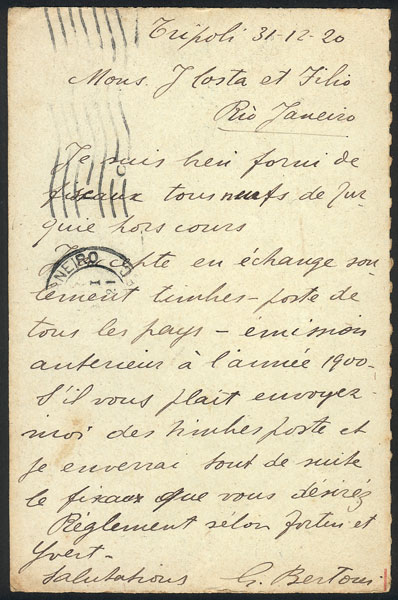 Tripoli 31-12-20
Mons. J Costa et Filio
Rio Janeiro
Je suis bien forni de
fiscaux tous neufs de Tur
quie hors cours
J'accepte en échange seu
lement timbres-poste de
tous les pays - emission
anterieur à l'année 1900-
S'il vous plait envoyez-
moi des timbres poste et
je enverrai tout de suite
le fixaux que vous désiréz
Réglement sélon fortin et
Yvert-
Salutations G. Bertoni
NEIRO